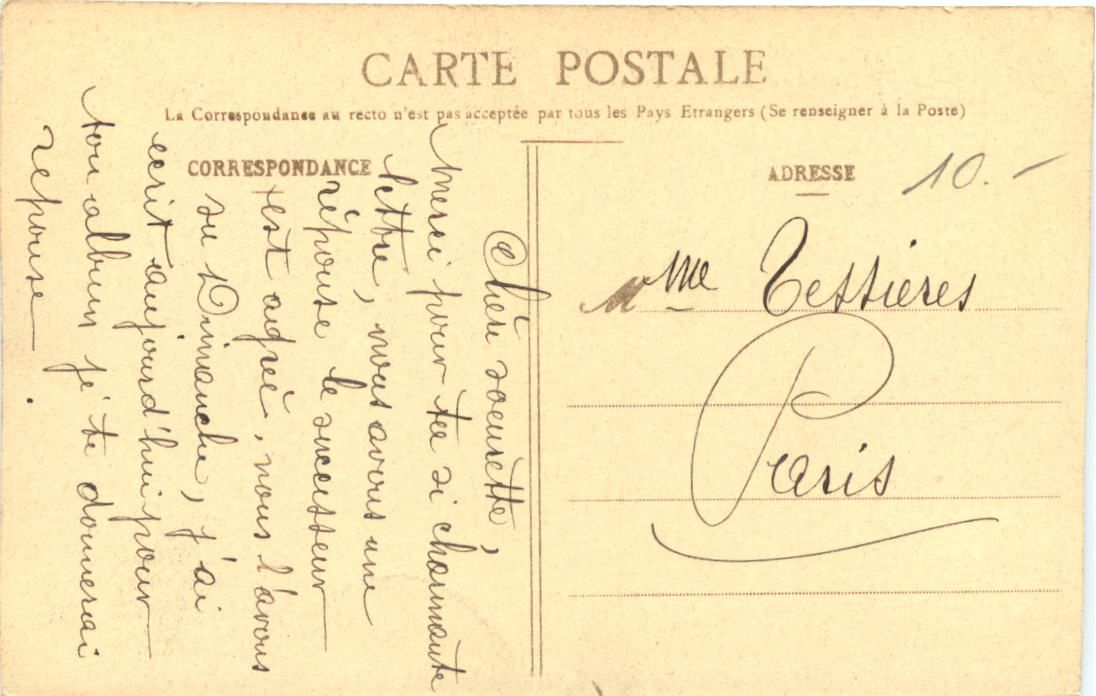 CARTE POSTALE
La Correspondance au recto n'est pas acceptée par tous les Pays Etrangers (Se renseigner à la Poste)
CORRESPONDANCE
Chère soeurette,
Merci pour ta si charmante
lettre, nous avons une
réponse le successeur
est agréé, nous l'avons
su Dimanche, j'ai
ecrit aujourd'hui pour
ton album je te donnerai
reponse
ADRESSE
10.-
Mme Tessières
Paris